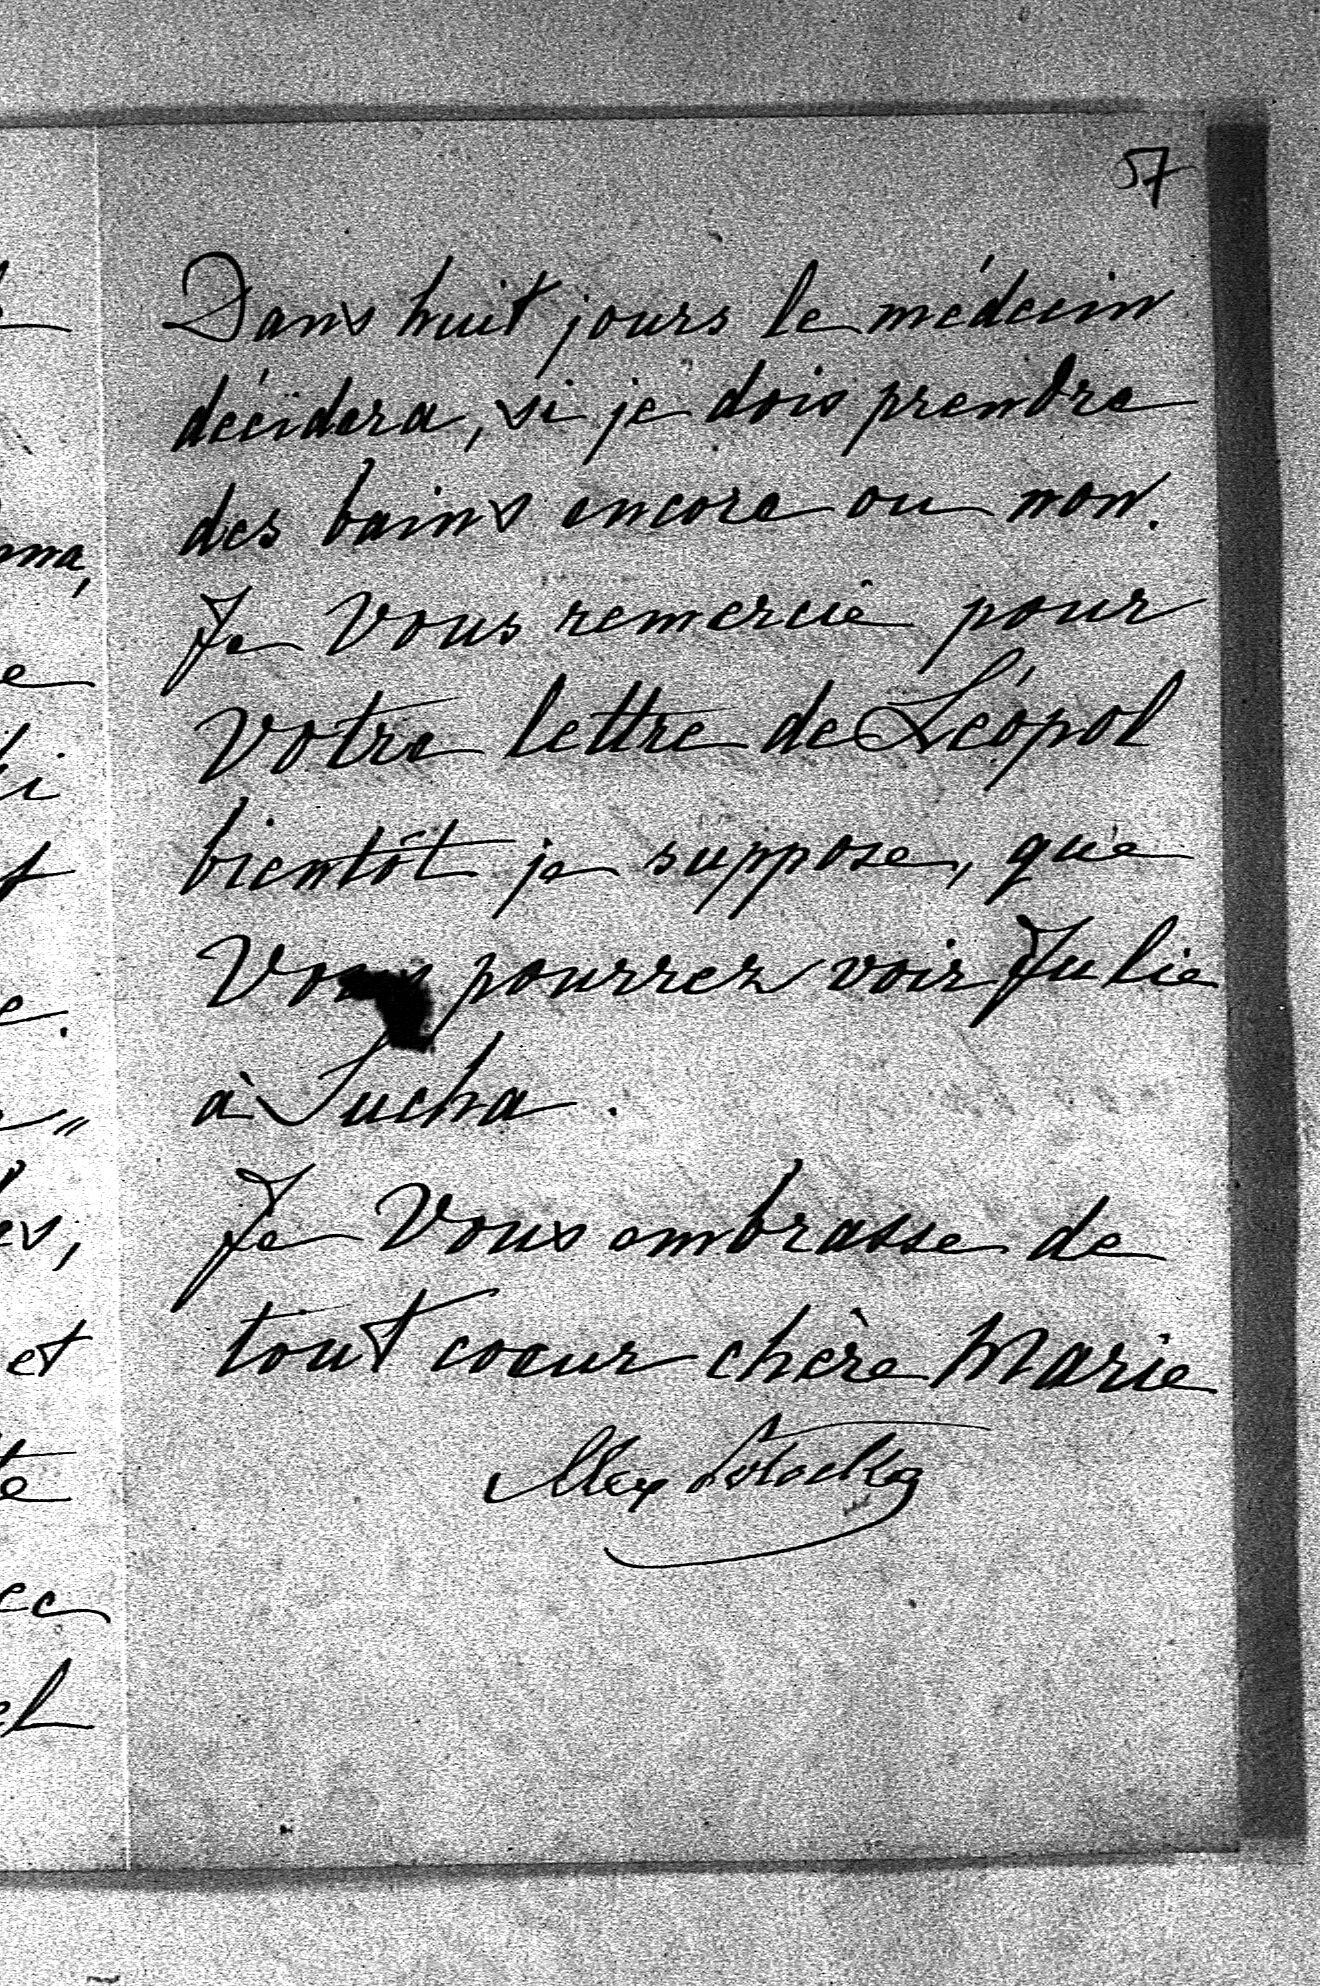 57
Dans huit jours le médecin
décidera, si je dois prendre
des bains encore ou non.
Je Vous remercie pour
Votre lettre de Léopol
bientôt je suppose, que
Vous pourrez voir Julie
à Sucha.
Je Vous embrasse de
tout coeur chère Marie
Alex
mma,
et